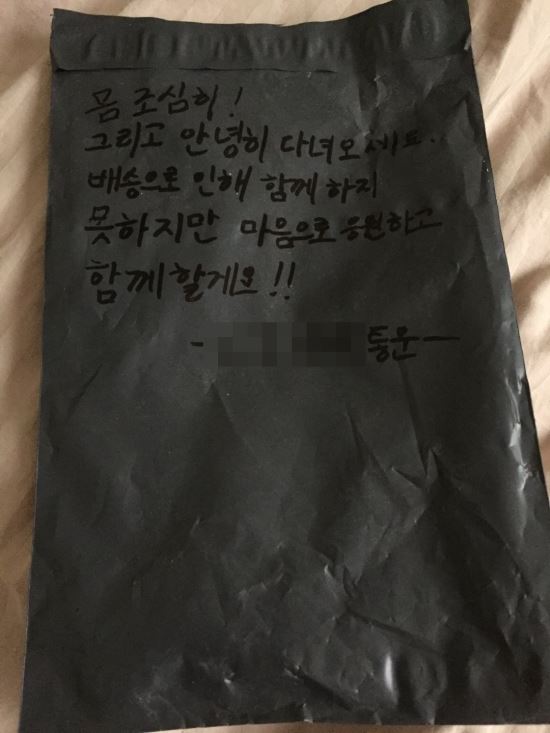 몸 조심히!
그리고 안녕히 다녀오세요..
배송으로 인해 함께 하지
못하지만 마음으로 응원하고
함께 할게요!!
- 통운 -